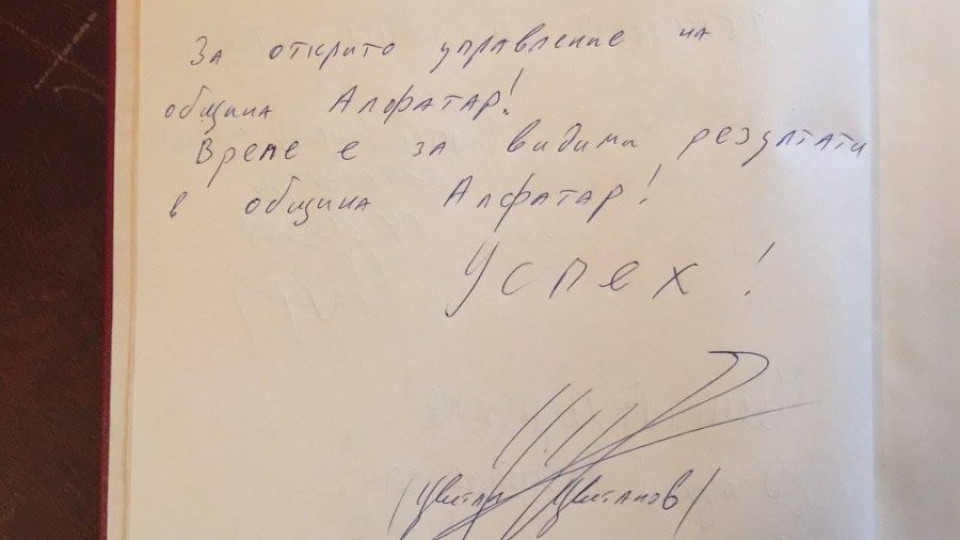 За открито управление на
община Алфатар!
Време е за видими резултати
в община Алфатар!
Успех!
/Цветан Цветанов/